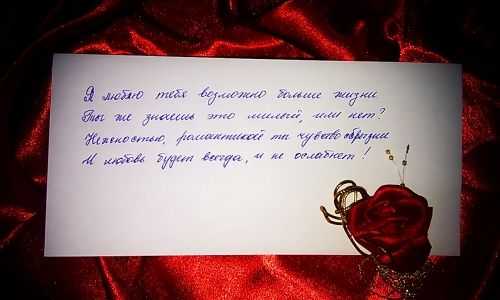 Я люблю тебя возможно больше жизни
Ты же знаешь это милый, или нет?
Нежностью, романтикой ты чувства
И любовь будет всегда, и не ослабнет!